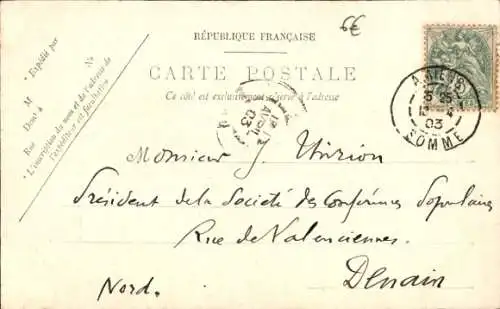 6€
RÉPUBLIQUE FRANÇAISE
CARTE POSTALE
Ce côté est exclusivement réservé à l'adresse
* Expédié par
M
Demt à
Rue
No
* L'inscription du nom et de l'adresse de
l'expéditeur est facultative
AMIENS
03
SOMME
12
AVRIL
03
Monsieur J
Président de la Société des Conférences Populaires
Rue de Valenciennes.
Denain
Nord.